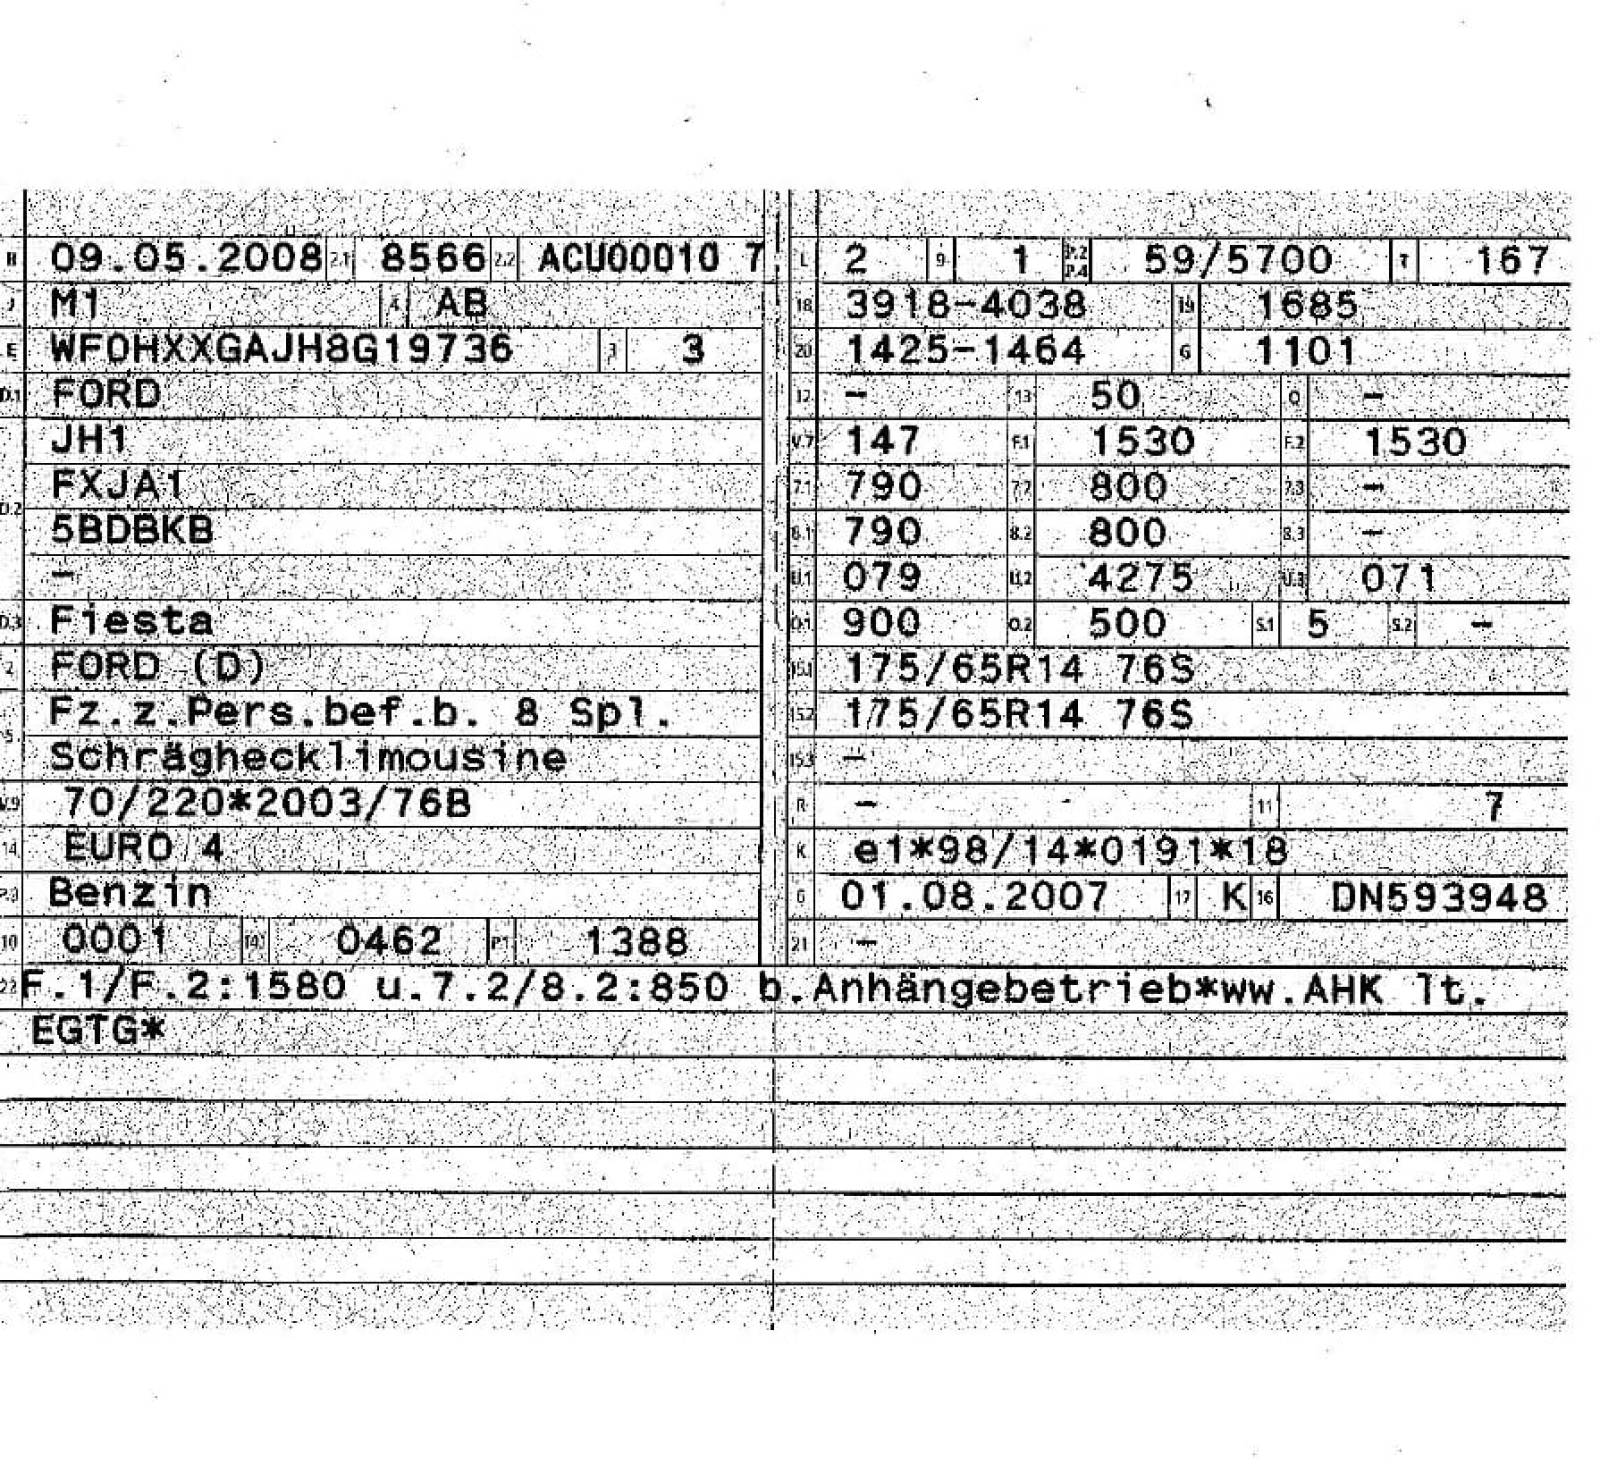 B 09.05.2008 2.1 8566 2.2 ACU00010 7
J M1 4 AB
E WF0HXXGAJH8G19736 3 3
D.1 FORD
JH1
FXJA1
D.2
5BDBKB
–
D.3 Fiesta
2 FORD (D)
Fz.z.Pers.bef.b. 8 Spl.
5
Schräghecklimousine
V.9 70/220*2003/76B
14 EURO 4
P.3 Benzin
10 0001 14.1 0462 P.1 1388
L 2 9 1 P.2 P.4 59/5700 T 167
18 3918-4038 19 1685
20 1425-1464 G 1101
12 – 13 50 Q –
V.7 147 F.1 1530 F.2 1530
7.1 790 7.2 800 7.3 –
8.1 790 8.2 800 8.3 –
U.1 079 U.2 4275 U.3 071
O.1 900 O.2 500 S.1 5 S.2 –
15.1 175/65R14 76S
15.2 175/65R14 76S
15.3 –
R – 11 7
K e1*98/14*0191*18
6 01.08.2007 17 K 16 DN593948
21 –
22 F.1/F.2:1580 u.7.2/8.2:850 b.Anhängebetrieb*ww.AHK lt.
EGTG*